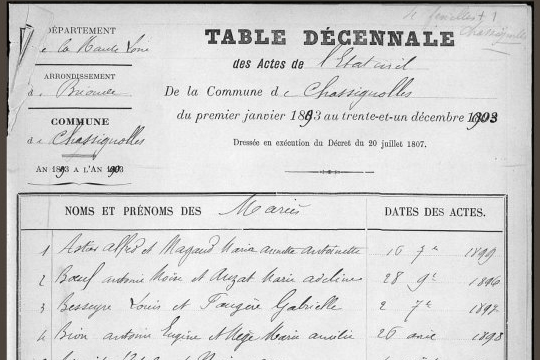 4 feuilles + 1
Chassignolles
DÉPARTEMENT
de la Haute Loire
ARRONDISSEMENT
de Brioude
COMMUNE
de Chassignolles
AN 1893 A L'AN 1903
TABLE DÉCENNALE
des Actes de l'Etat civil
De la Commune de Chassignolles
du premier janvier 1893 au trente-et-un décembre 1903
Dressée en exécution du Décret du 20 juillet 1807.
NOMS ET PRÉNOMS DES Mariés
DATES DES ACTES.
1 Alfred et Magaud Marie annette antoinette 16 7re 1899
2 Bœuf antoine Moïse et Auzat Marie adeline 28 9re 1896
3 Besseyre Louis et Fougère Gabrielle 2 7re 1897
4 Bion antoine Eugène et Marie amélie 26 1898